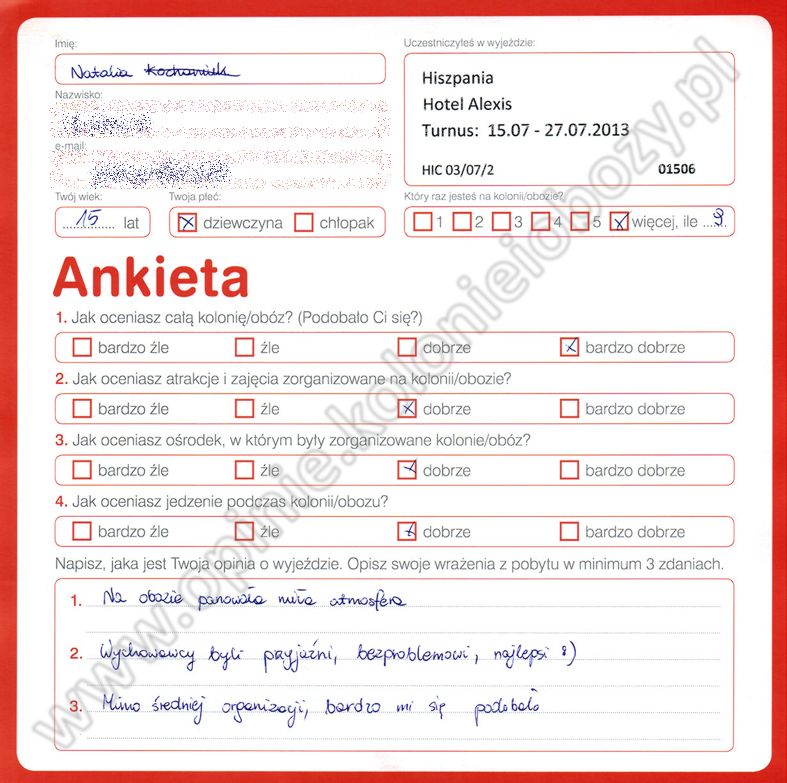 Imię:
Natalia
Uczestniczyłeś w wyjeździe:
Hiszpania
Hotel Alexis
Turnus: 15.07 - 27.07.2013
HIC 03/07/2 01506
Nazwisko:
e-mail:
Twój wiek: Twoja płeć: Który raz jesteś na kolonii/obozie?
15 lat dziewczyna chłopak 1 2 3 4 5 więcej, ile 9
Ankieta
1. Jak oceniasz całą kolonię/obóz? (Podobało Ci się?)
bardzo źle źle dobrze bardzo dobrze
2. Jak oceniasz atrakcje i zajęcia zorganizowane na kolonii/obozie?
bardzo źle źle dobrze bardzo dobrze
3. Jak oceniasz ośrodek, w którym były zorganizowane kolonie/obóz?
bardzo źle źle dobrze bardzo dobrze
4. Jak oceniasz jedzenie podczas kolonii/obozu?
bardzo źle źle dobrze bardzo dobrze
Napisz, jaka jest Twoja opinia o wyjeździe. Opisz swoje wrażenia z pobytu w minimum 3 zdaniach.
1. Na obozie panowała miła atmosfera
2. Wychowawcy byli przyjaźni, bezproblemowi, najlepsi :)
3. Mimo średniej organizacji, bardzo mi się podobało
www.opinie.kolonieiobozy.pl